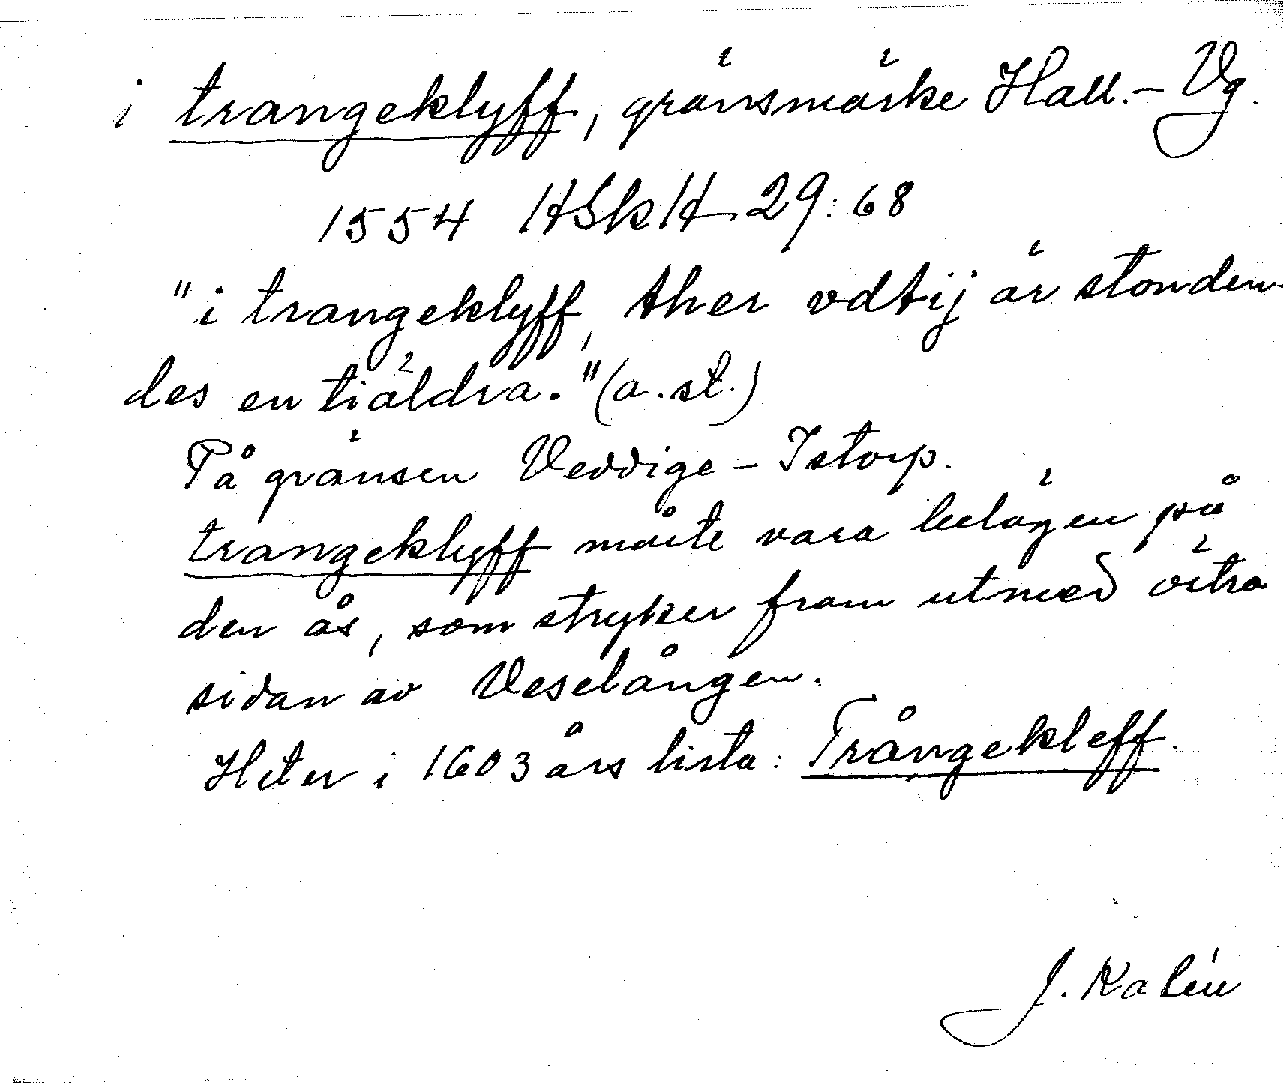 i trangeklyff, gränsmärke Hall. – Vg.
1554 HSkH 29:68
"i trangeklyff, ther vdtij är stonden-
des en tiäldra." (a. st.)
På gränsen Veddige – Istorp.
trangeklyff måste vara belägen på
den ås, som stryker fram utmed östra
sidan av Veselången.
Heter i 1603 års lista: Trångekleff.
J. Kalén